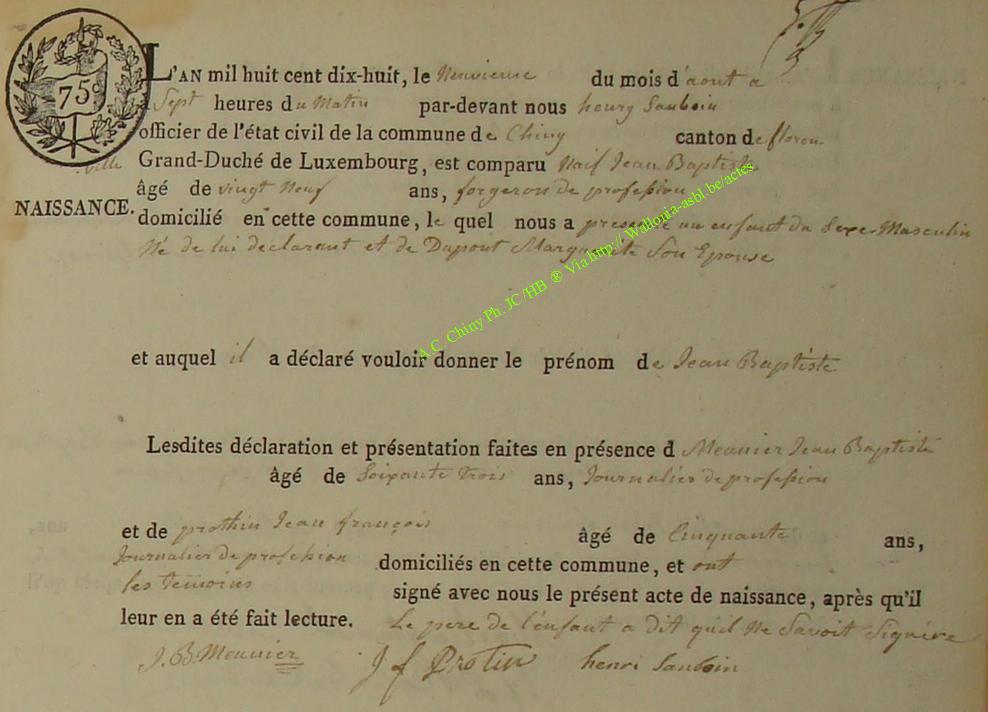 75c
L'AN mil huit cent dix-huit, le Neuvieme du mois d'aout a
Sept heures du Matin par-devant nous henry Sauboin
officier de l'état civil de la commune de Chiny canton de floren.
ville Grand-Duché de Luxembourg, est comparu Naif Jean Baptiste
âgé de vingt Neuf ans, forgeron de profession
NAISSANCE.
domicilié en cette commune, le quel nous a presente un enfant du Sexe Masculin
Né de lui declarant et de Dupont Marguerite Son Epouse
A.C. Chiny Ph. JC/HB ® Via http:// Wallonia-asbl.be/actes
et auquel il a déclaré vouloir donner le prénom de Jean Baptiste
Lesdites déclaration et présentation faites en présence d Meunier Jean Baptiste
âgé de Soixante trois ans, Journalier de profession
et de prothin Jean françois âgé de Cinquante ans,
Journalier de profession domiciliés en cette commune, et ont
les temoins signé avec nous le présent acte de naissance, après qu'il
leur en a été fait lecture. Le pere de l'enfant a dit qu'il Ne Savoit Signére
J. B. Meunier J f Protin henri Sauboin